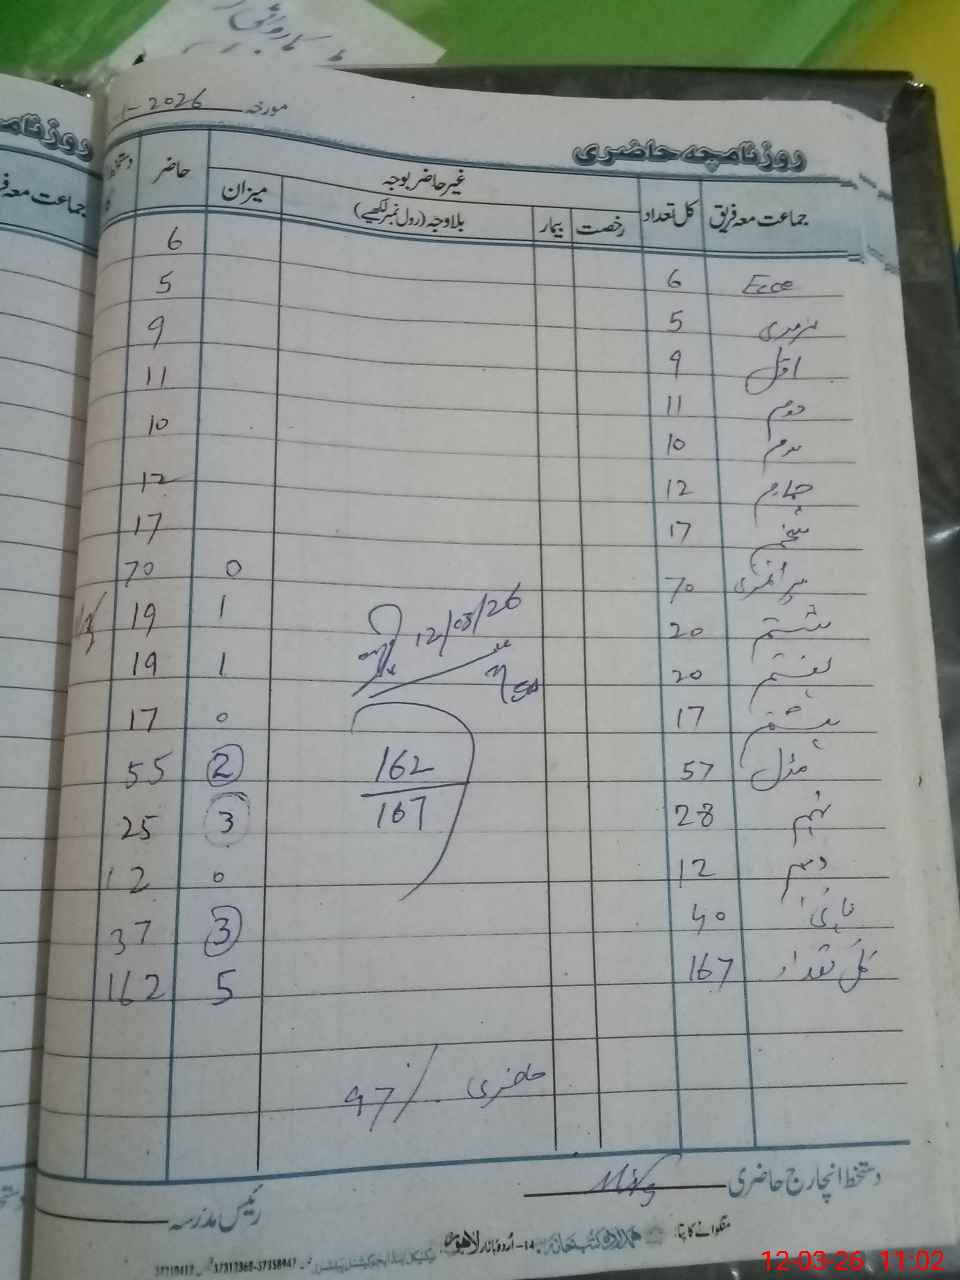 مورخہ 1-2026
روزنامچہ حاضری
جماعت معہ فریق کل تعداد غیر حاضر بوجہ حاضر
رخصت بیمار بلاوجہ (رول نمبر لکھیے) میزان
6
Ecce 6 5
نرسری 5 9
اول 9 11
دوم 11 10
سوم 10 12
چہارم 12 17
پنجم 17 0 70
پرائمری 70 1 19
ششم 20 1 19
12/03/26
ہفتم 20 0 17
ہشتم 17 2 55
مڈل 57 162 3 25
167
نہم 28 0 12
دہم 12 3 37
ہائی 40 5 162
کل تعداد 167
حاضری 97٪
دستخط انچارج حاضری
رئیس مدرسہ
منگوانے کا پتا: 14-اردو بازار لاہور
12-03-26 11:02
روزنامچہ
جماعت معہ